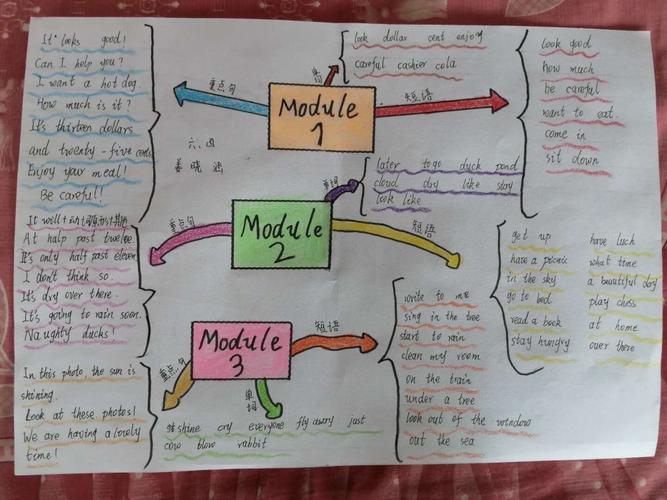 It looks good!
Can I help you?
I want a hot dog.
How much is it?
It's thirteen dollars
and twenty-five cents
Enjoy your meal!
Be careful!
重点句
单词
look dollar cent enjoy
careful cashier cola
Module
1
短语
look good
how much
be careful
want to eat.
come in
sit down
六.四
姜晓
later to go duck pond
cloud dry like stay
look like
单词
Module
2
重点句
短语
It will +
At halp past twelve.
It's only half past eleven
I don't think so.
It's dry over there.
It's going to rain soon.
Naughty ducks!
get up
have a picnic
in the sky
go to bed
read a book
stay hungry
have luch
what time
a beautiful day
play chess
at home
over there
Module
3
短语
重点句
单词
write to me
sing in the tree
start to rain
clean my room
on the train
under a tree
look out of the window
out the sea
In this photo, the sun is
shining.
Look at these photos!
We are having a lovely
time!
shine cry everyone fly away just
cow blow rabbit